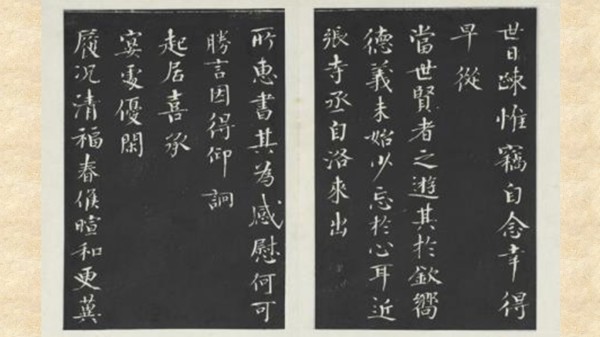 世日疎惟竊自念幸得
早從
當世賢者之遊其於欽嚮
德義未始少忘於心耳近
張寺丞自洛來出
所惠書其為感慰何可
勝言因得仰詗
起居喜承
宴處優閑
履況清福春候暄和更冀